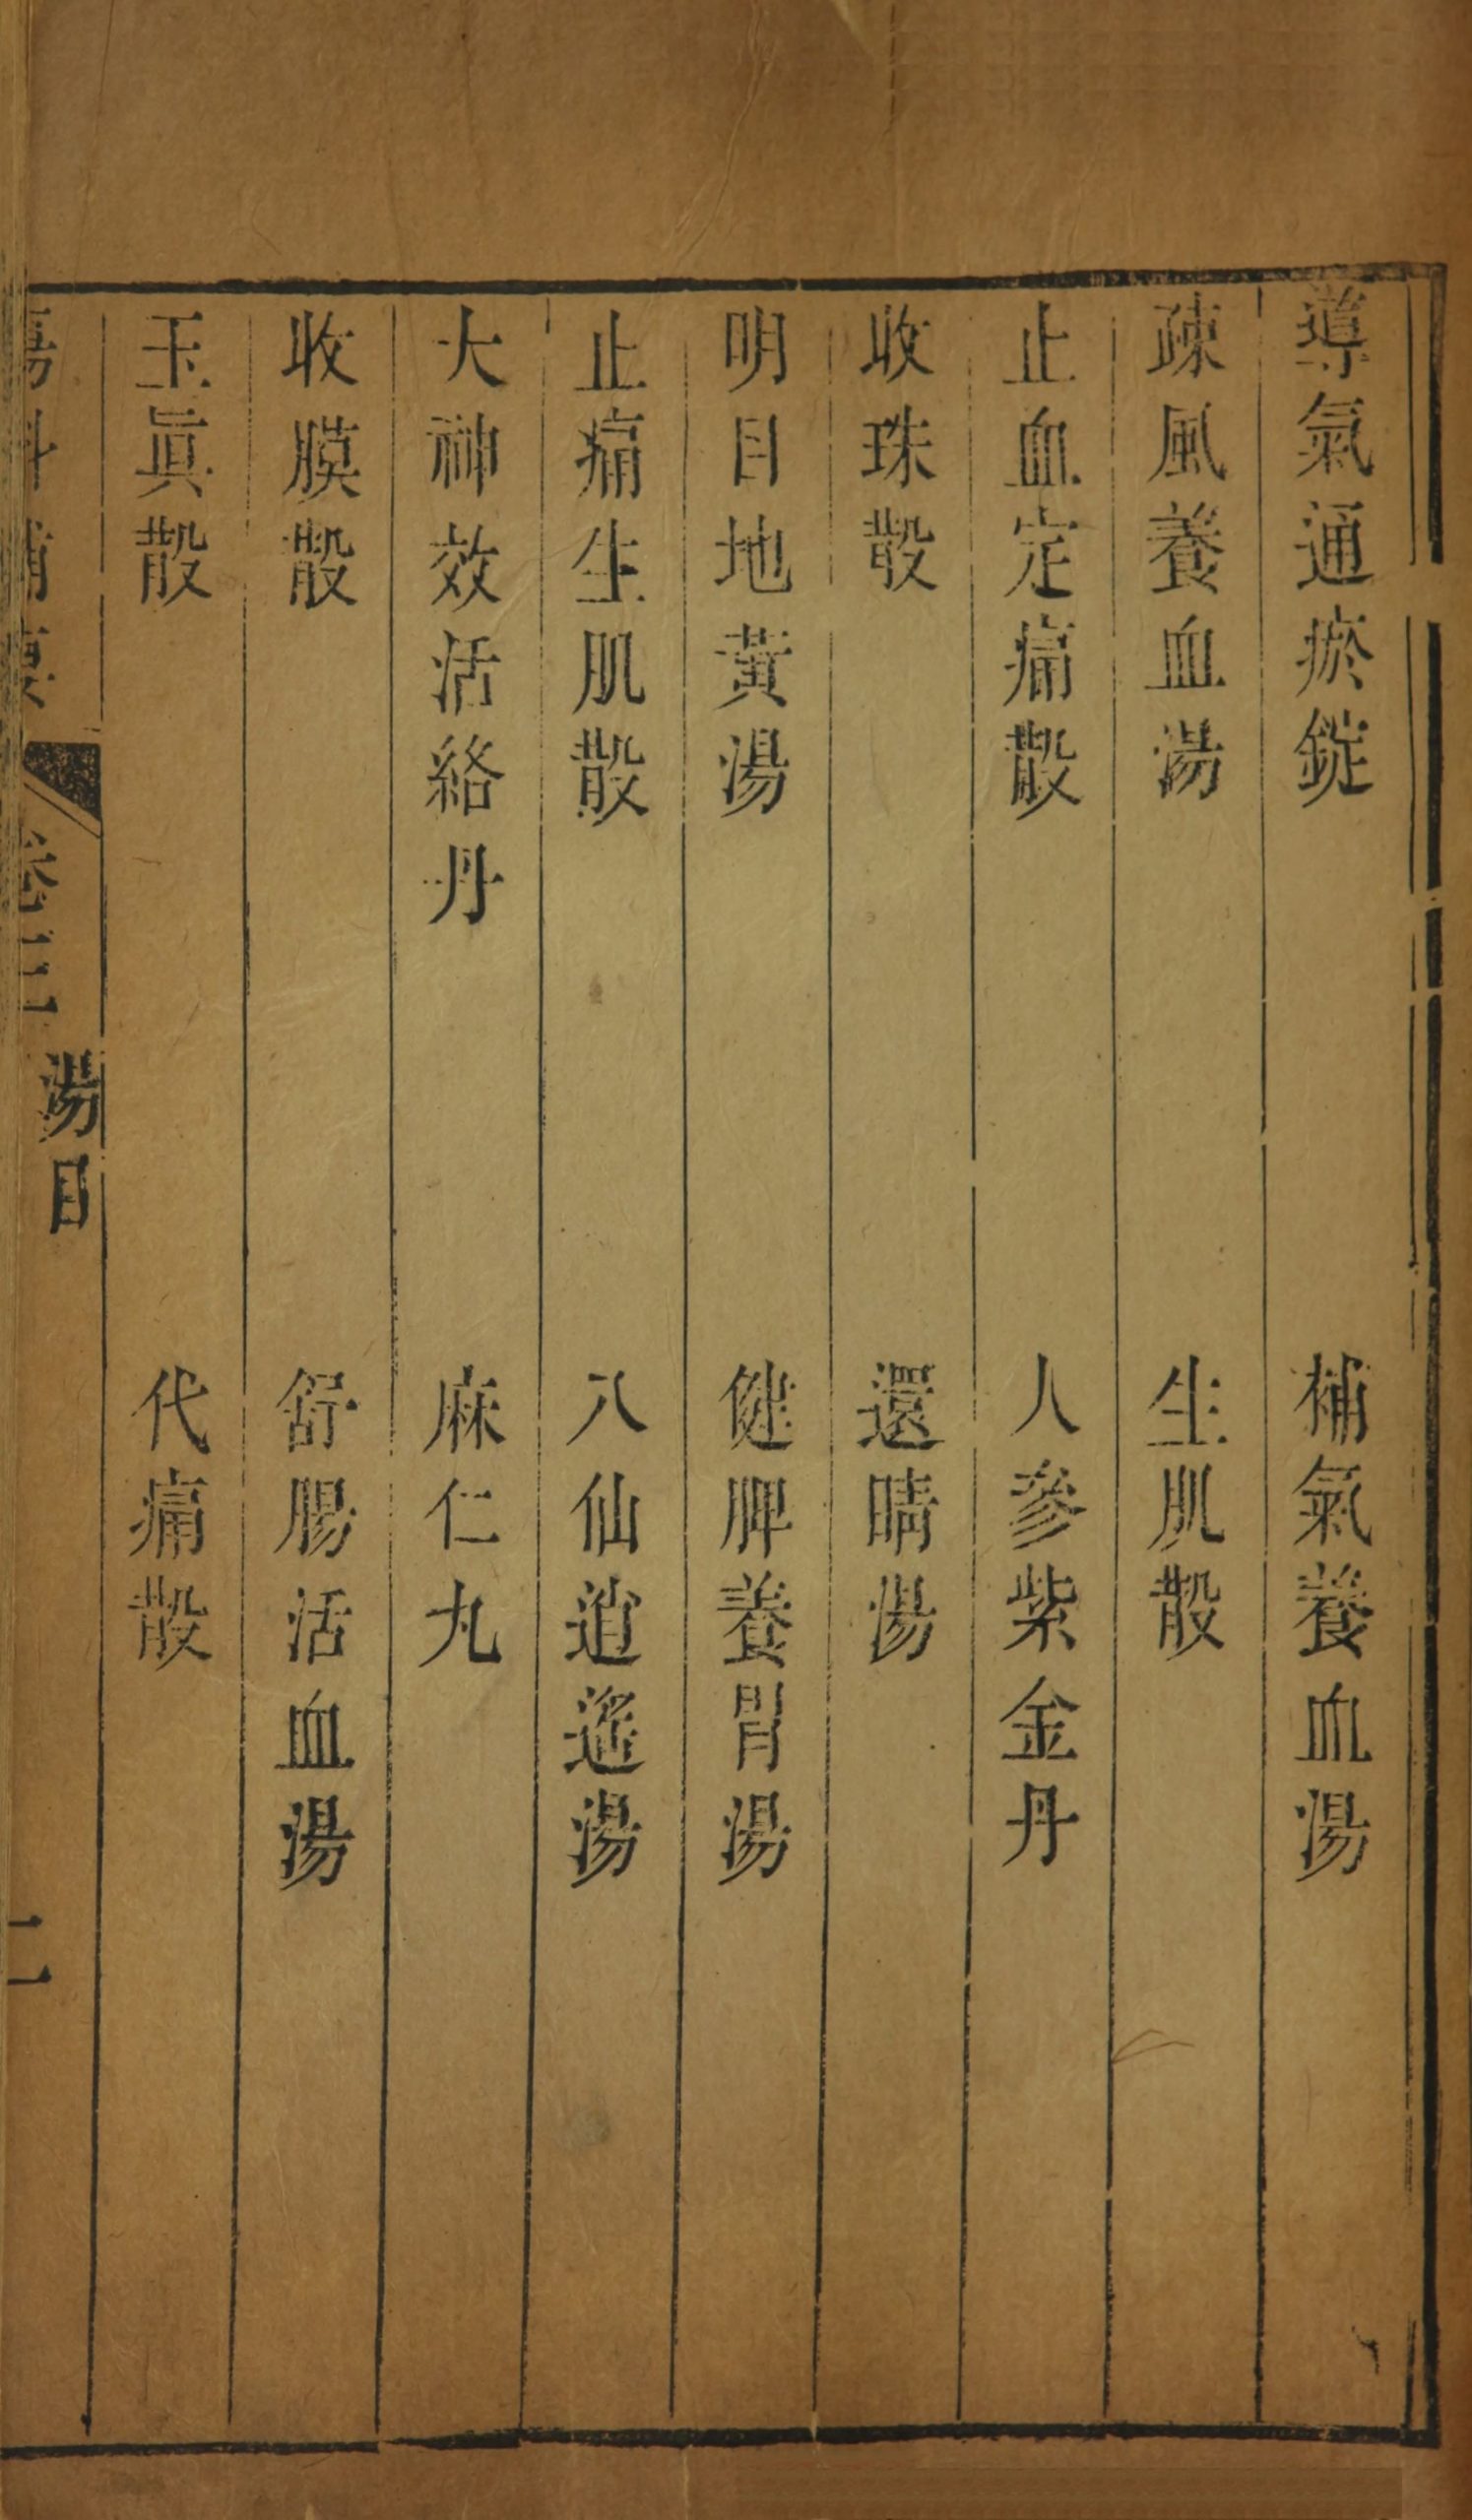 導氣通瘀錠　補氣養血湯
疎風養血湯　生肌散
止血定痛散　人參紫金丹
收珠散　還睛湯
明目地黃湯　健脾養胃湯
止痛生肌散　八仙逍遙湯
大神效活絡丹　麻仁丸
收膜散　舒腸活血湯
玉眞散　代痛散
傷科補要　卷三　湯目　二